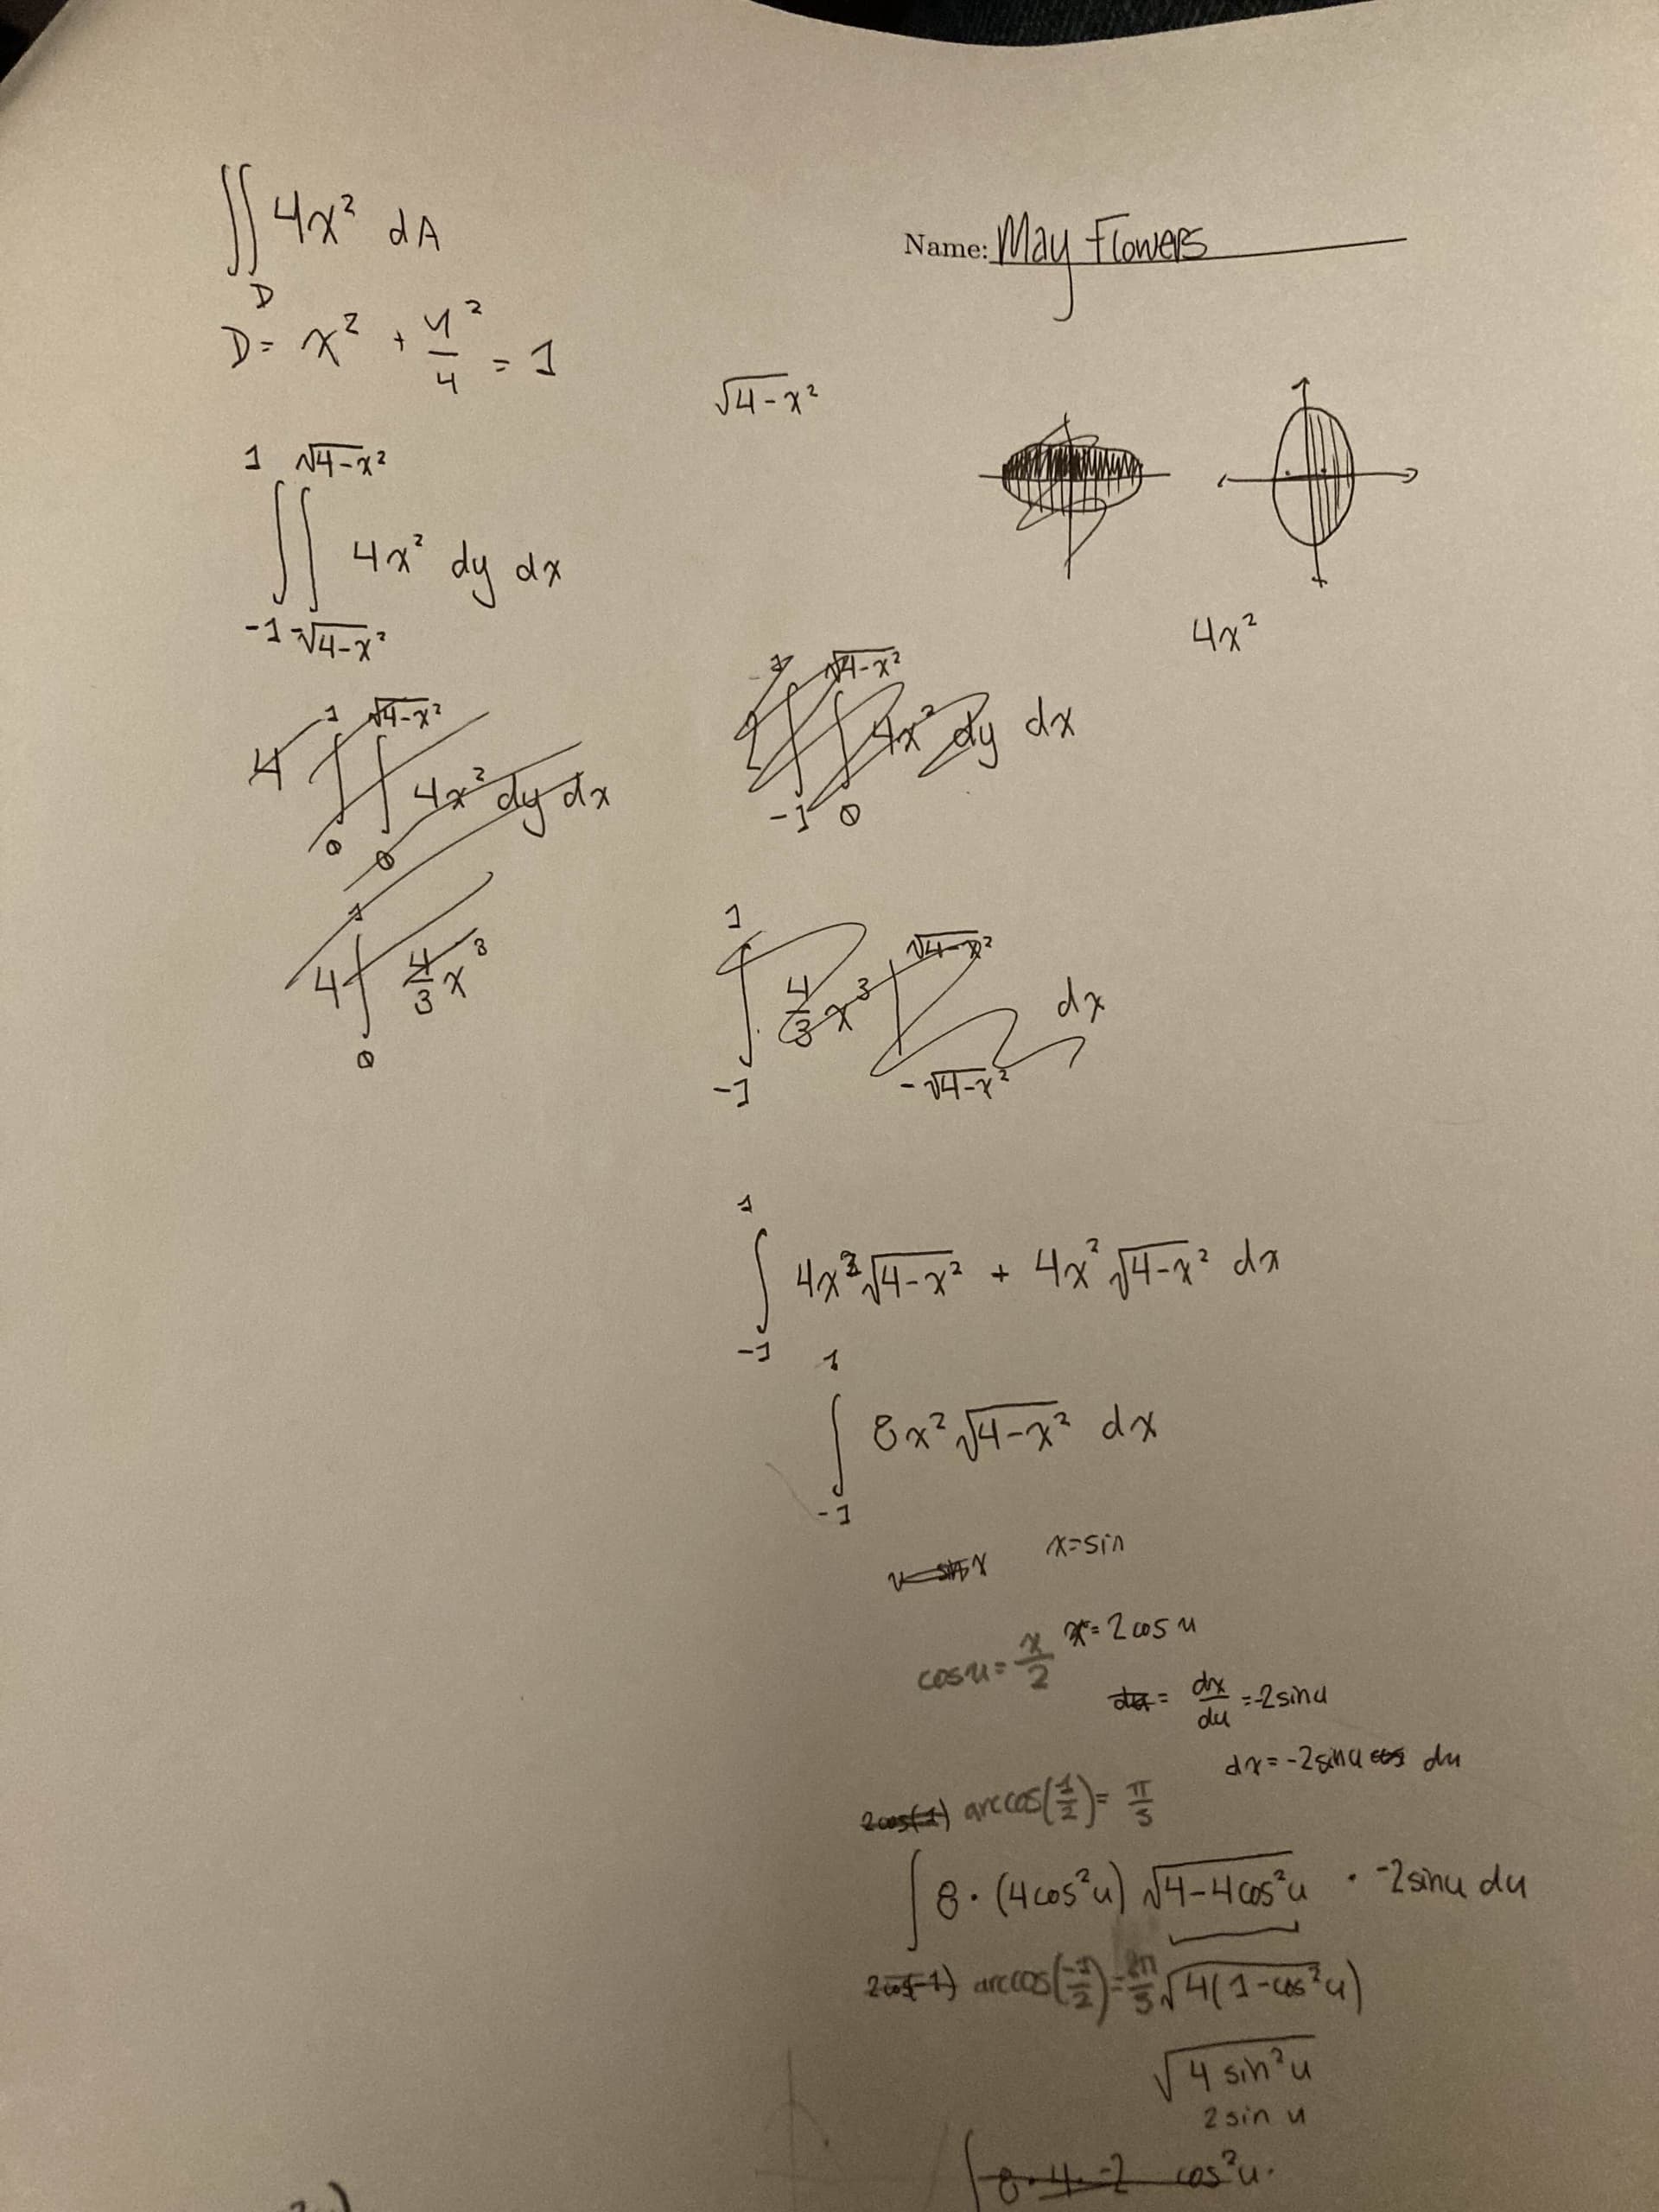 ∬_D 4x² dA
Name: May Flowers
D = x² + y²/4 = 1
√4-x²
∫_{-1}^{1} ∫_{-√4-x²}^{√4-x²} 4x² dy dx
4x²
4 ∫_0^1 ∫_0^{√4-x²} 4x² dy dx
∫_{-1} ∫_0^{√4-x²} 4x² dy dx
4 ∫_0^1 4/3 x³
∫_{-1}^{1} 4/3 x³ |_{-√4-x²}^{√4-x²} dx
∫_{-1}^{1} 4x²√4-x² + 4x²√4-x² dx
∫_{-1}^{1} 8x²√4-x² dx
u = sin x x=sin
cosu = x/2 x = 2cos u
du = dx/du = -2sinu
dx = -2sinu cos du
2cos(1) arccos(1/2) = π/3
∫ 8·(4cos²u) √4-4cos²u · -2sinu du
2cos(-1) arccos(-1/2) = 2π/3 √4(1-cos²u)
√4 sin²u
2 sin u
∫ 8·4·-2 cos²u·